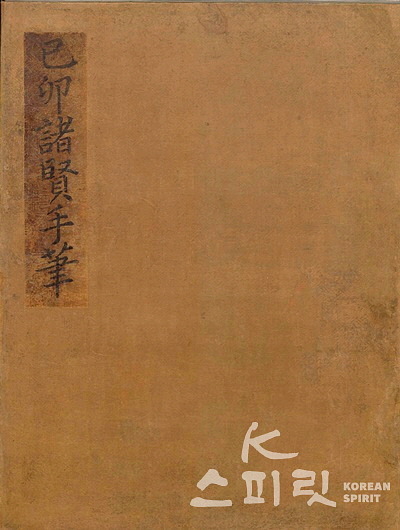 己卯諸賢手筆
K
스피릿 KOREAN
SPIRIT